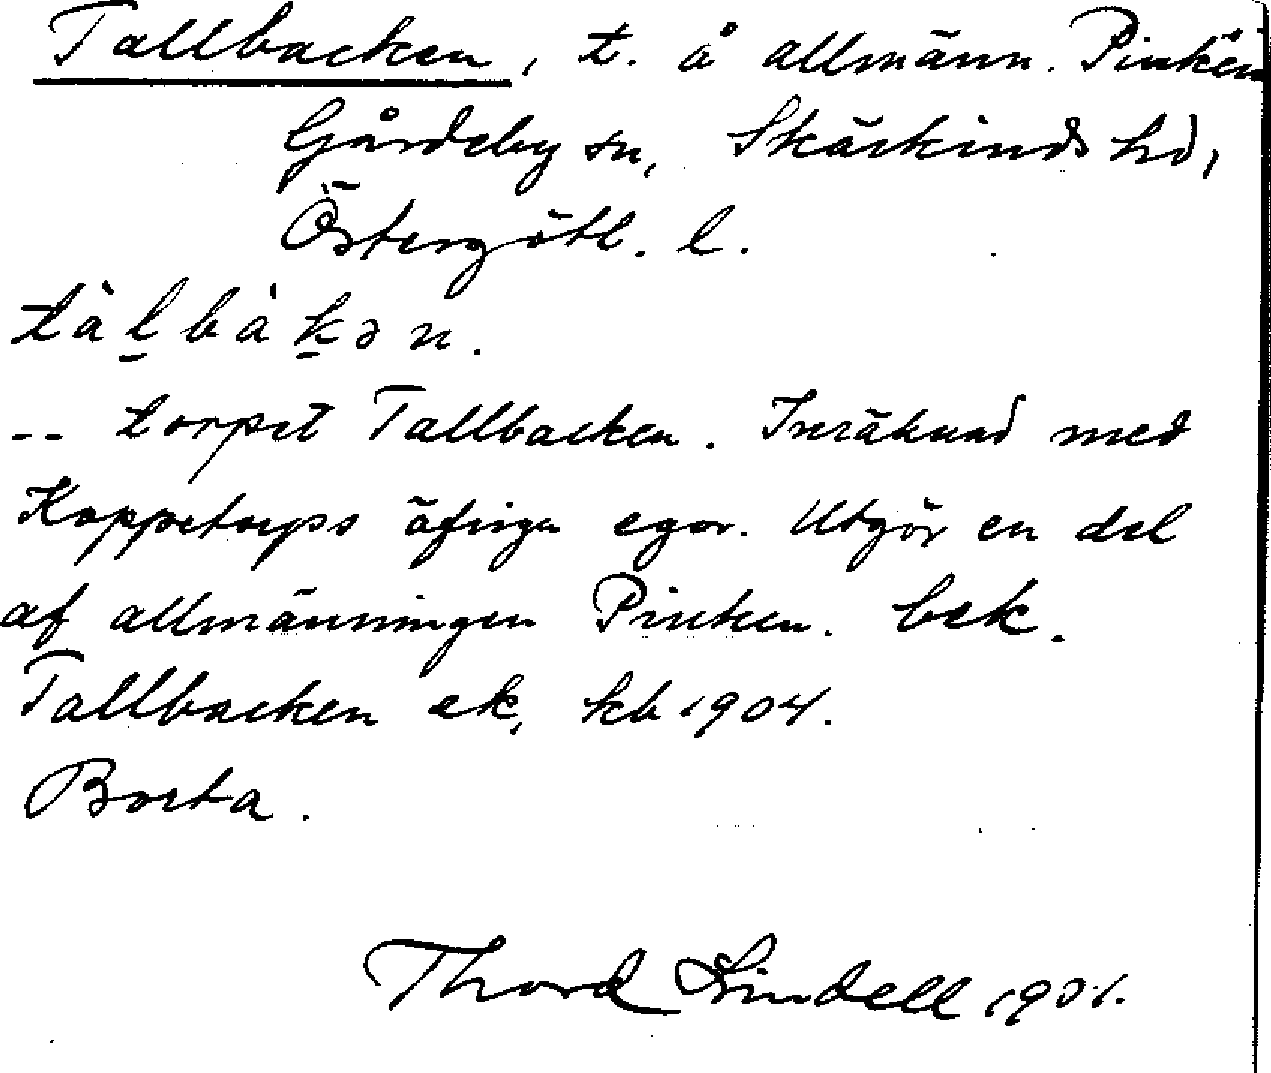 Tallbacken, t. å allmänn. Pinken
Gårdeby sn, Skärkinds hd,
Östergötl. l.
tàl̠bàk̠ən.
-- torpet Tallbacken. Inräknad med
Koppetorps öfriga egor. Utgör en del
af allmänningen Pinken. bek.
Tallbacken ek, kb 1904.
Borta.
Thord Lindell